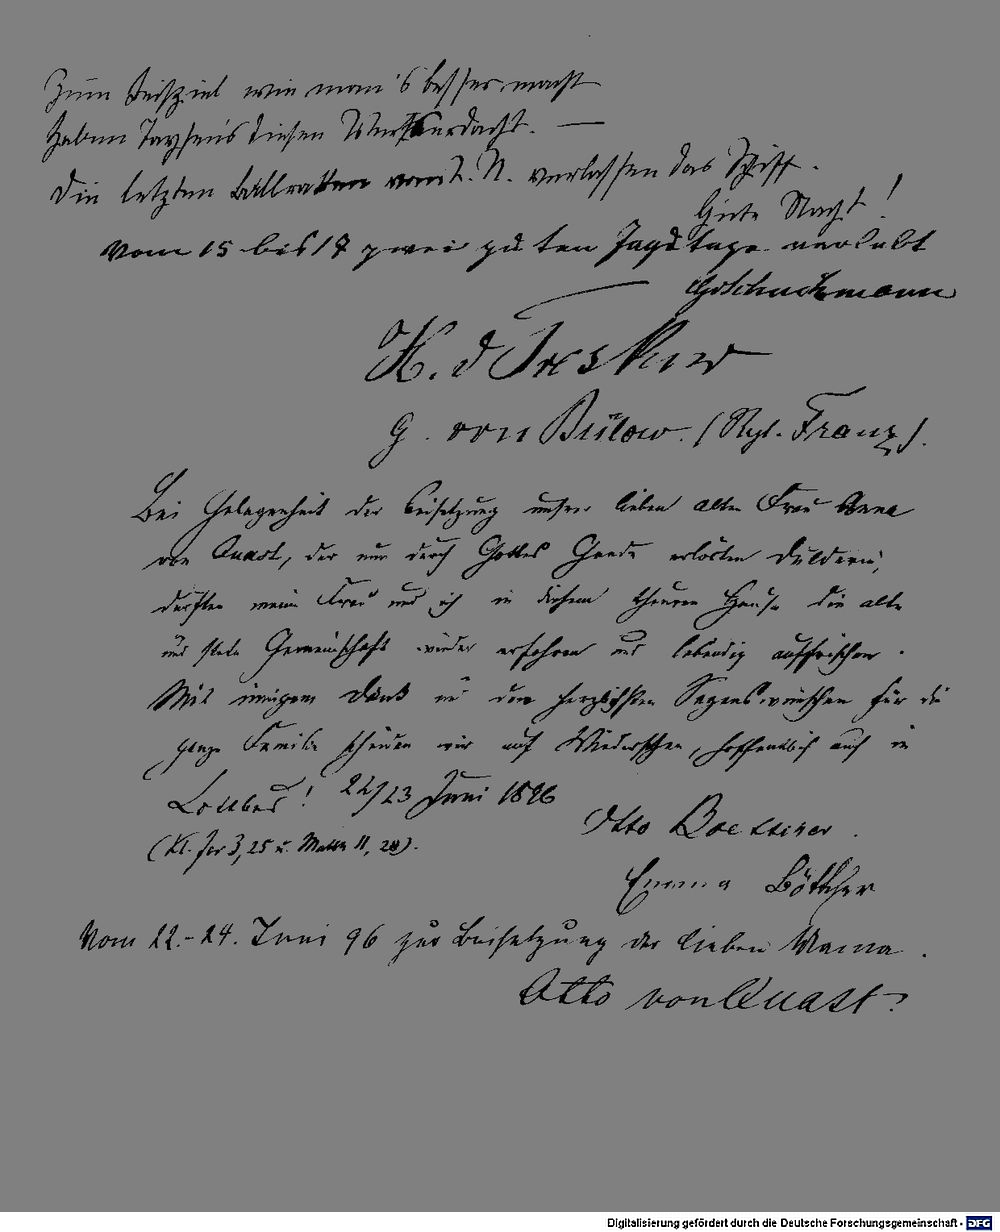 Zum Beispiel wie man's besser macht
haben Taysen's diesen Vers erdacht. —
Die letzten Ballratten vom L. R. verlassen das Schiff.
Gute Nacht!
Vom 15 bis 17 zwei guten Jagdtage verlebt
GvSchuckmann
H. v Treskow
G. von Bülow. (Rgt. Franz).
Bei Gelegenheit der Beisetzung unsrer lieben alten Frau Anna
von Quast, der nun durch Gottes Gnade erlösten Dulderin,
durften meine Frau und ich in diesem theuren Hause die alte
und stete Gemeinschaft wieder erfahren und lebendig auffrischen.
Mit innigem Dank und den herzlichsten Segenswünschen für die
ganze Familie scheiden wir auf Wiedersehen, hoffentlich auch in
Cottbus! 22/23 Juni 1896
Otto Boettcher.
(Kl. Jer 3, 25 u. Matth 11, 28).
Emma Böttcher
Vom 22.-24. Juni 96 zur Beisetzung der lieben Mama.
Otto von Quast.
Digitalisierung gefördert durch die Deutsche Forschungsgemeinschaft - DFG